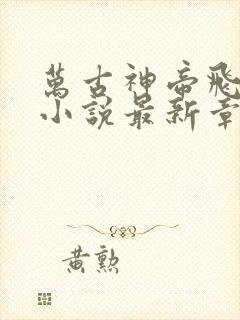 萬古神帝飛
小說最新章
黃勲